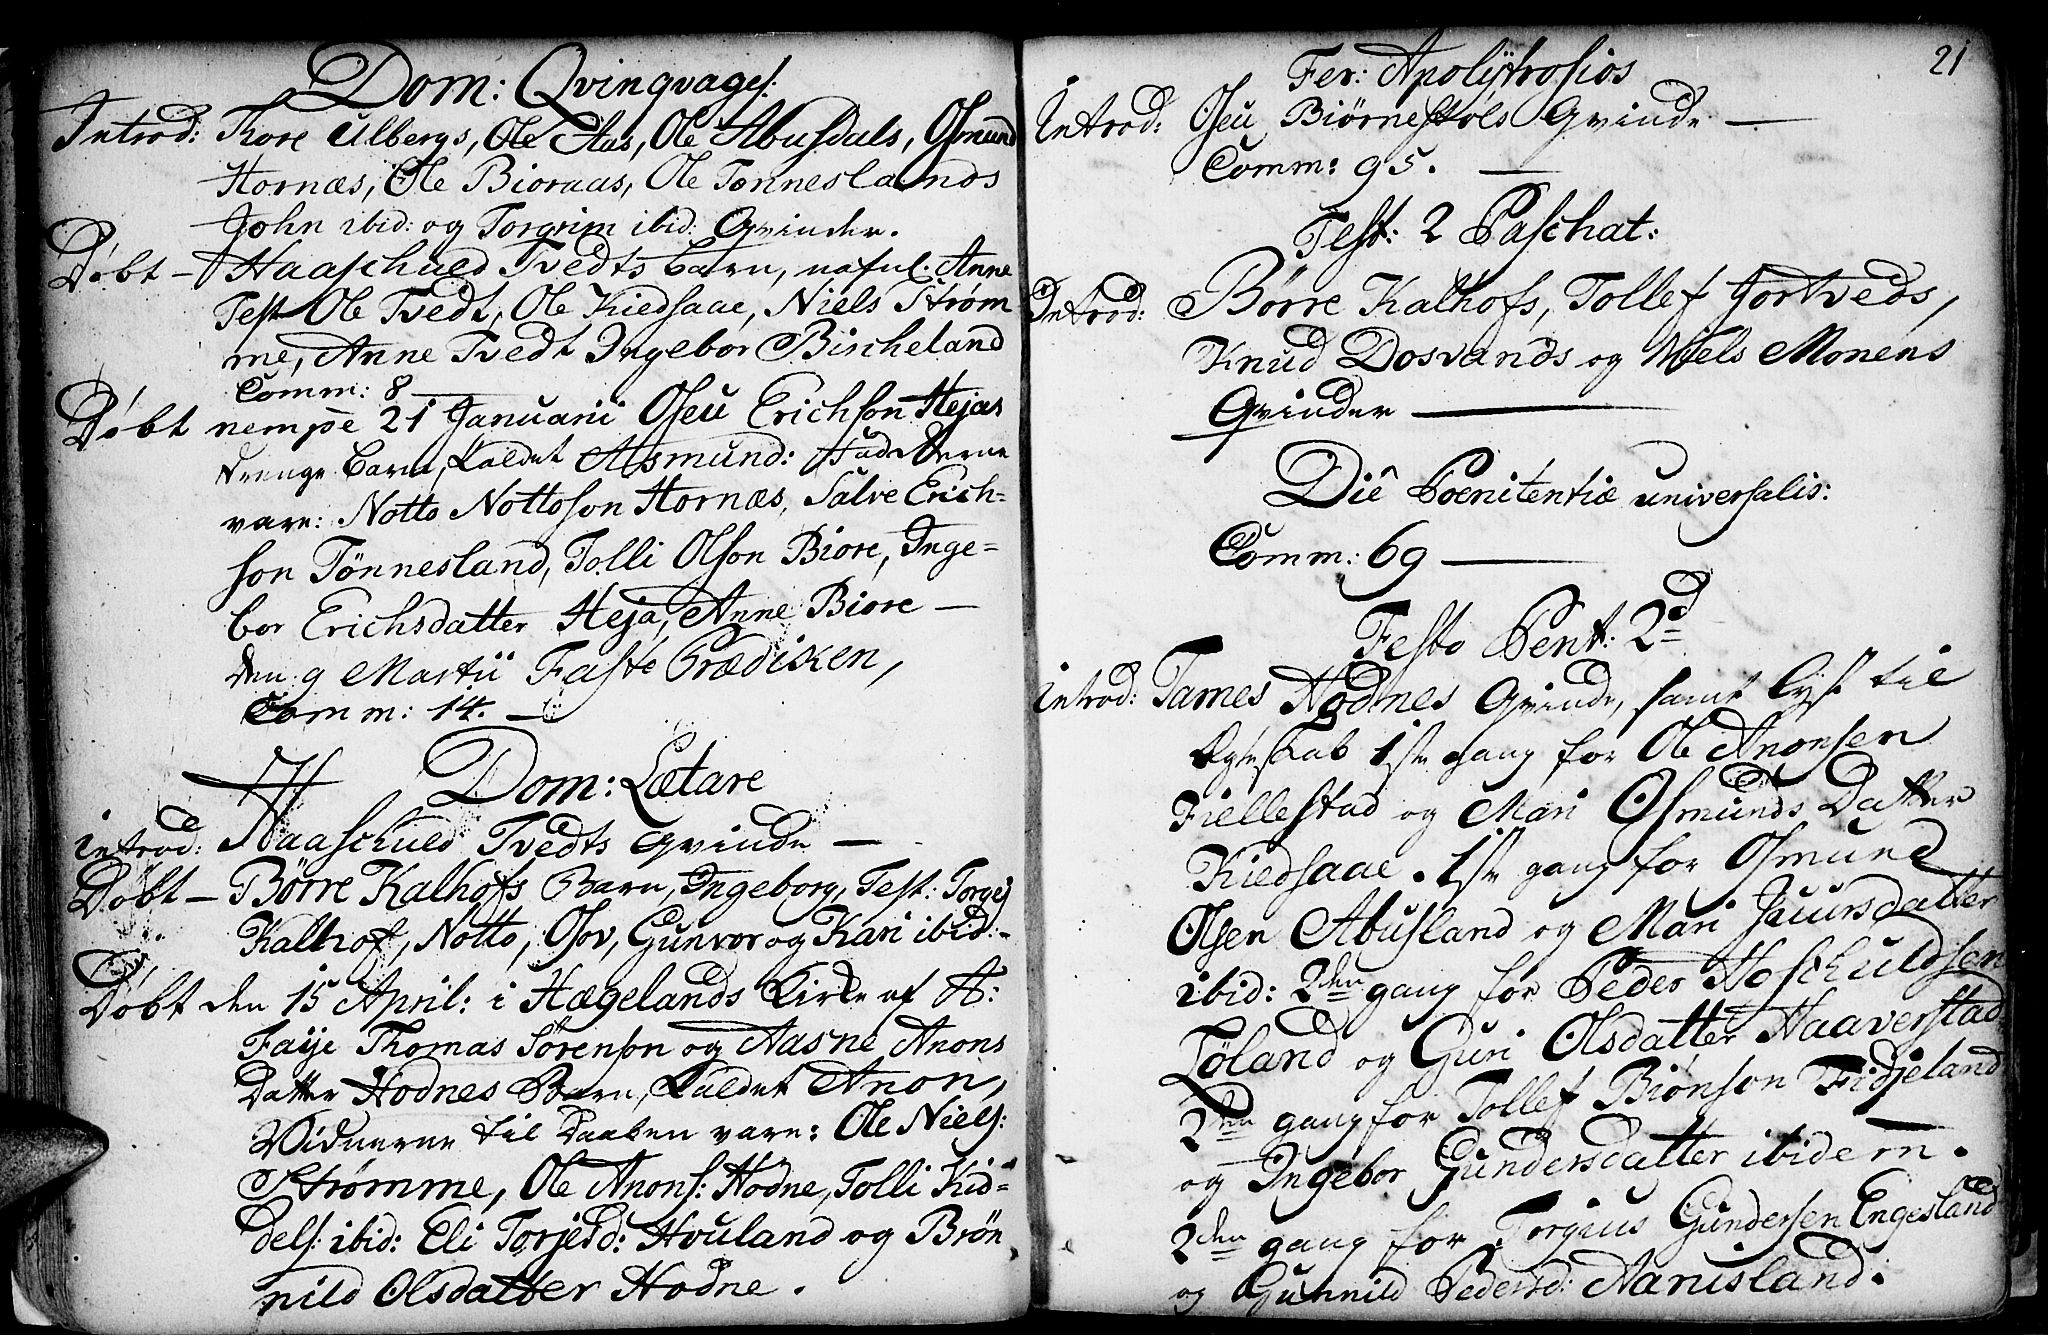 Dom: Qvinqvages:
Introd: Thore Ulbergs, Ole Aas, Ole Abusdals, Osmund
Hornæs, Ole Bioraas, Ole Tønneslands
John ibid: og Torgrim ibid: Qvinder.
Døbt – Haaschuld Tvedts barn, nafnl. Anne
Test Ole Tvedt, Ole Kiedsaae, Niels Strøm
me, Anne Tvedt Ingebor Bischeland
Comm: 8 —
Døbt nempe 21 Januarii Oseu Erichson Hejas
drenge barn, kaldet Asmund: Fadderne
vare: Notto Nottoson Hornæs, Salve Erich-
son Tønnesland, Tolli Olson Biore, Inge-
bor Erichsdatter Heja, Anne Biore —
den 9 Martii Faste Prædiken,
Comm: 14. —
Dom: Lætare
Introd: Haaschuld Tvedts qvinde —
Døbt – Børre Kalhofs Barn, Ingeborg, Test: Torgej
Kalhof, Notto, Osov, Gunvor og Kari ibid: -
Døbt den 15 April: i Hægelands Kirke af A:
Faye Thomas Sørenson og Aasne Anons
Datter Hodnes Barn, kaldet Anon,
Vidnerne til Daaben vare: Ole Niels:
Strømme, Ole Anons: Hodne, Tolli Kid-
dels: ibid: Eli Torjesd: Houland og Brøn
nild Olsdatter Hodne.
21
Fer: Apolytrosios
Introd: Oseu Biørnestols Qvinde —
Comm: 95. —
Fest: 2 Paschat:
Introd: Børre Kalhofs, Tollef Jortveds,
Knud Dosvands og Niels Monens
Qvinder —
Diê Poenitentiæ universalis:
Comm: 69 —
Festo Pent: 2d
Introd: Tames Hodnes Qvinde, samt lyst til
Egteskab 1ste gang for Ole Anonsen
Fiellestad og Mari Osmunds Datter
Kiedsaae. 1ste gang for Osmund
Olsen Abusland og Mari Siursdatter
ibid: 2den gang for Peder Hoschuldson
Løland og Guri Olsdatter Haaverstad
2den gang for Tollef Biønson Fidjeland
og Ingebor Gundersdatter ibidem.
2den gang for Torgius Gundersen Engesland
og Gunnild Pedersd: Aanisland.